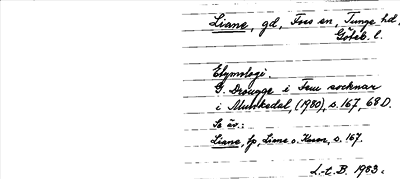 Liane, gd, Foss sn, Tunge hd,
Göteb. l.
Etymologi.
G. Drougge i Fem socknar
i Munkedal, (1980), s. 167, 68 D.
Se äv.:
Liane, tp, Liane o. Kasen, s. 167.
L-t. B. 1983.